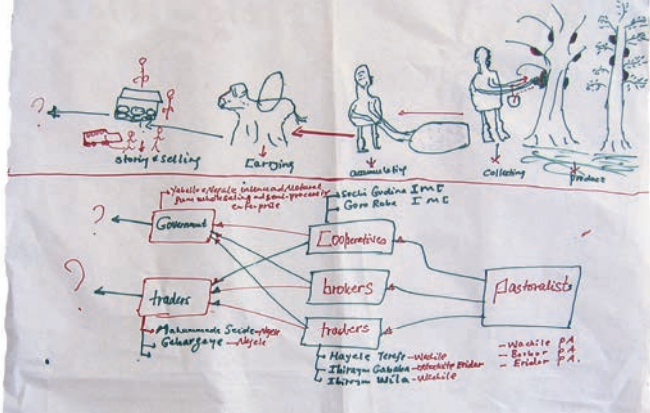 ?
storing & selling
Carrying
accumulating
collecting
product
Yabello & Negele incense and Natural
Gum wholesaling and semi-processing
enterprise
Sochi Gudina IMC
Goro Raba IMC
?
Government
Cooperatives
?
traders
brokers
Pastoralists
traders
Mahammade Seide - Negele
Gababa
Negele
Hayele Terefe - Wachile
Ibiraym Gababa
Ibiraym Wila - Wachile
- Wachile PA
- Borbor PA
- Eridar PA.